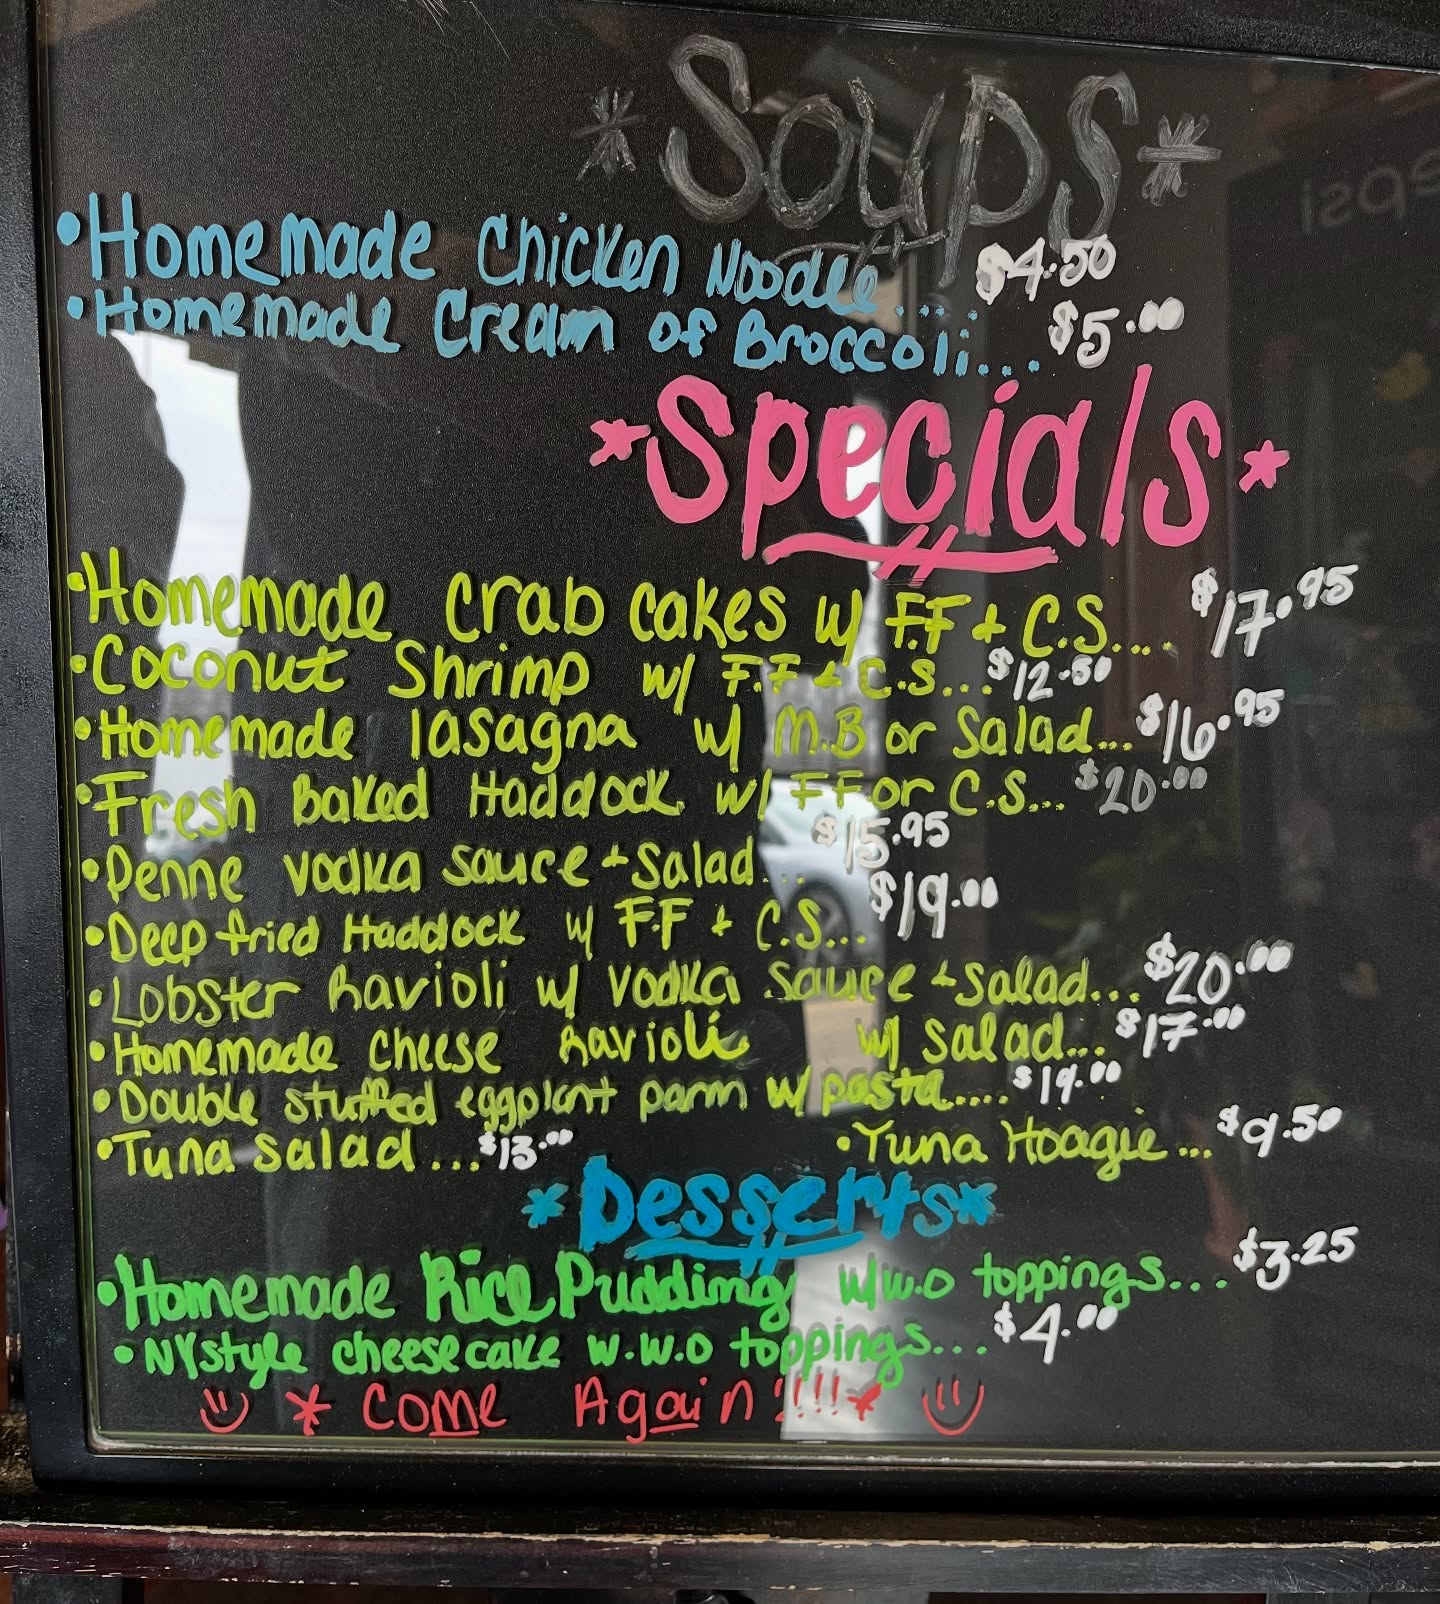 *Soups*
•Homemade Chicken Noodle.... $4.50
•Homemade Cream of Broccoli.... $5.00
*Specials*
•Homemade crab cakes w/ F.F + C.S.... $17.95
•Coconut Shrimp w/ F.F + C.S... $12.50
•Homemade lasagna w/ M.B or Salad... $16.95
•Fresh Baked Haddock w/ F.F or C.S... $20.00
•Penne vodka sauce + Salad... $15.95
•Deep fried Haddock w/ F.F + C.S... $19.00
•Lobster Ravioli w/ vodka sauce + salad... $20.00
•Homemade cheese Ravioli w/ salad... $17.00
•Double stuffed eggplant parm w/ pasta.... $19.00
•Tuna salad... $13.00 •Tuna Hoagie... $9.50
*Desserts*
•Homemade Rice Pudding w/w.o toppings... $3.25
•NY style cheesecake w.w.o toppings... $4.00
* Come Again!!!!*